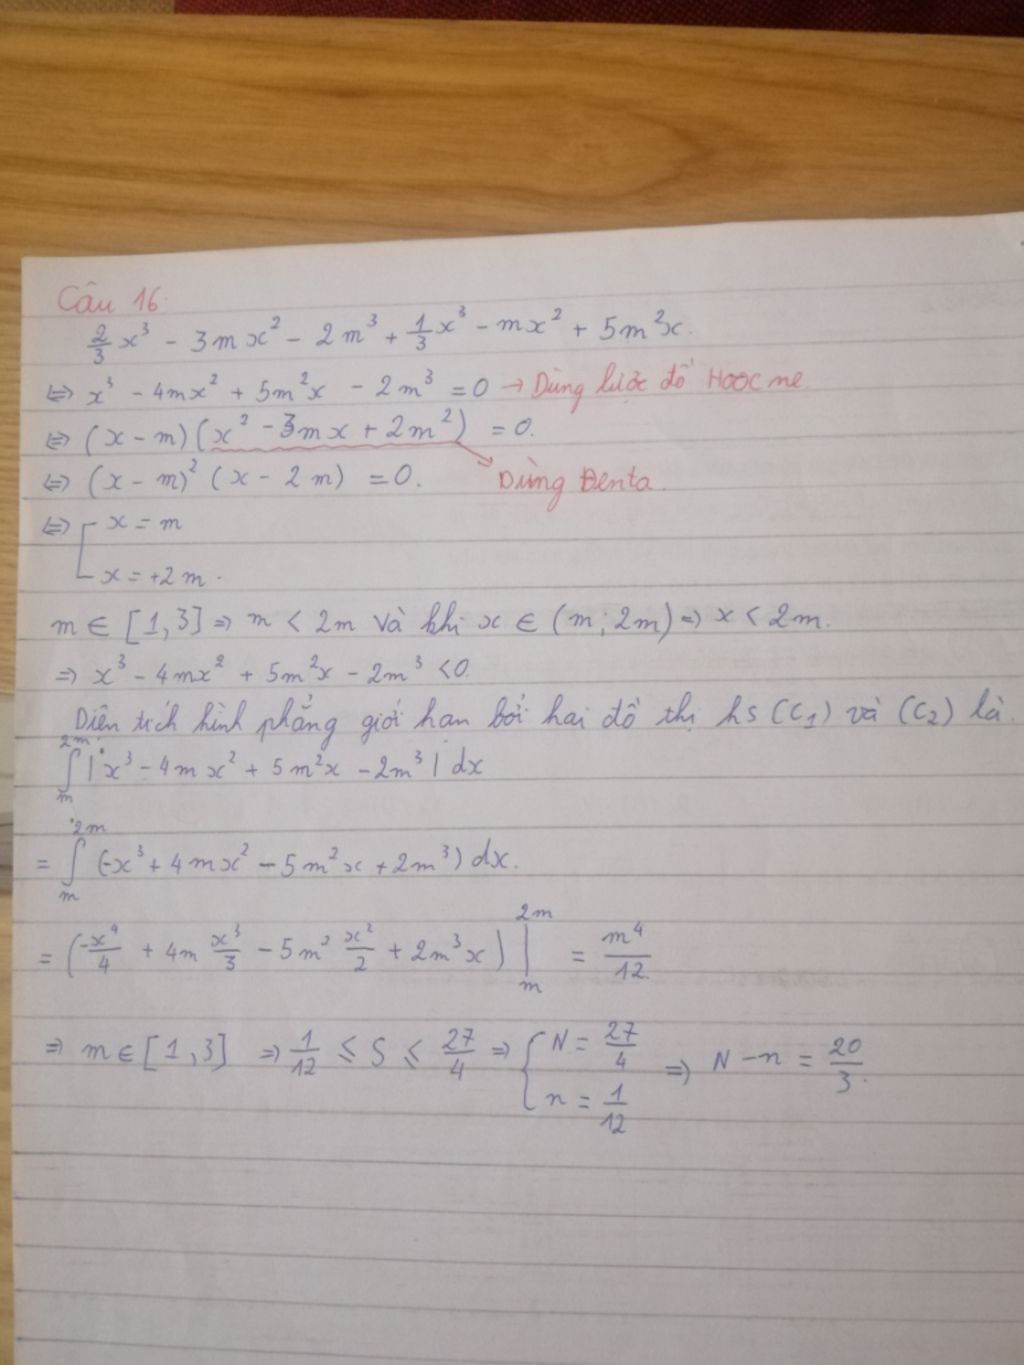 Câu 16.
2/3 x³ - 3mx² - 2m³ + 1/3 x³ - mx² + 5m²x.
⇔ x³ - 4mx² + 5m²x - 2m³ = 0 → Dùng lược đồ Hoocne
⇔ (x - m)(x² - 3mx + 2m²) = 0.
⇔ (x - m)² (x - 2m) = 0. Dùng Đenta.
⇔ [ x = m
x = +2m.
m ∈ [1,3] ⇒ m < 2m và khi x ∈ (m; 2m) ⇒ x < 2m.
⇒ x³ - 4mx² + 5m²x - 2m³ < 0.
Diện tích hình phẳng giới hạn bởi hai đồ thị hs (C₁) và (C₂) là.
∫_m^{2m} |x³ - 4mx² + 5m²x - 2m³| dx
= ∫_m^{2m} (-x³ + 4mx² - 5m²x + 2m³) dx.
= (-x⁴/4 + 4m x³/3 - 5m² x²/2 + 2m³x) |_m^{2m} = m⁴/12.
⇒ m ∈ [1,3] ⇒ 1/12 ≤ S ≤ 27/4 ⇒ { N = 27/4 ⇒ N - n = 20/3.
n = 1/12